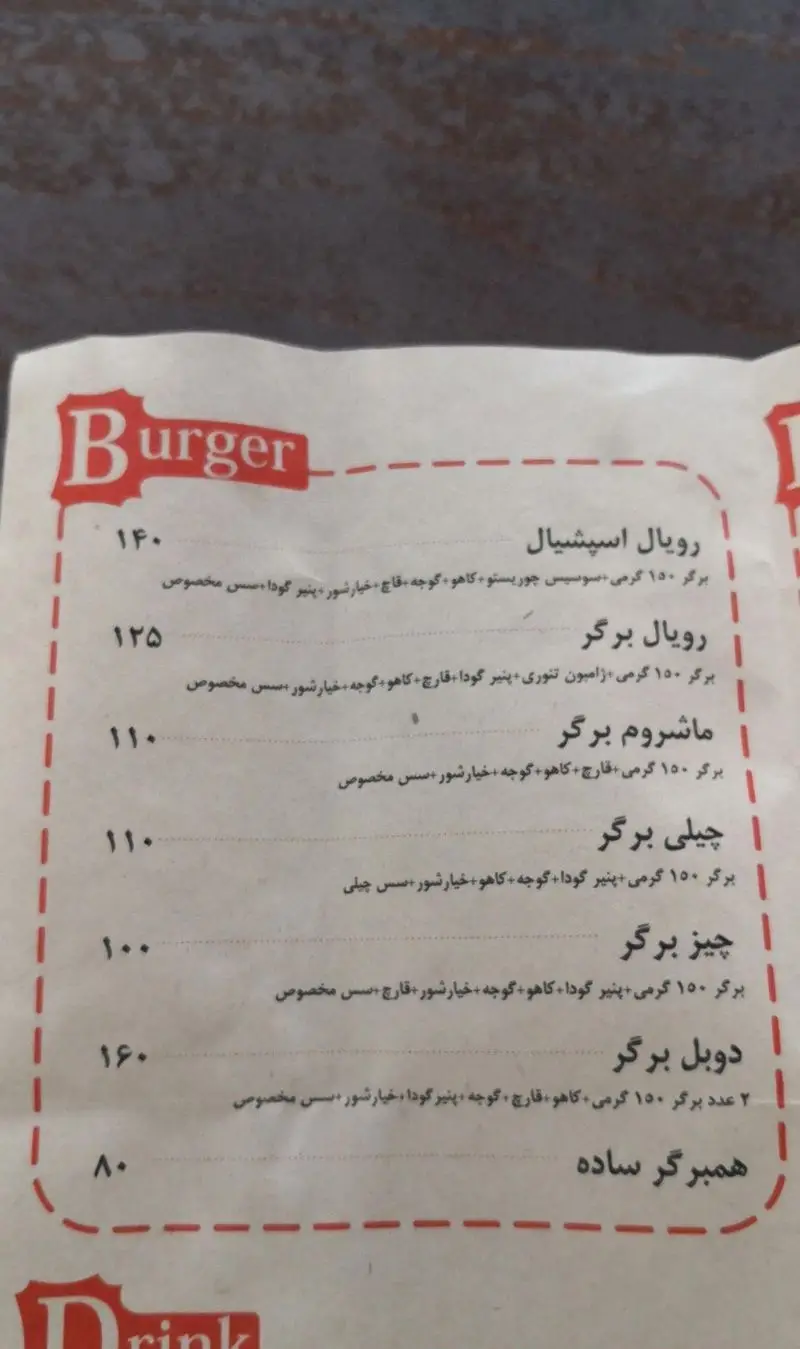 Burger
رویال اسپشیال ۱۴۰
برگر ۱۵۰ گرمی+سوسیس چوریستو+کاهو+گوجه+قاچ+خیارشور+پنیر گودا+سس مخصوص
رویال برگر ۱۲۵
برگر ۱۵۰ گرمی+ژامبون تنوری+پنیر گودا+قارچ+کاهو+گوجه+خیارشور+سس مخصوص
ماشروم برگر ۱۱۰
برگر ۱۵۰ گرمی+قارچ+کاهو+گوجه+خیارشور+سس مخصوص
چیلی برگر ۱۱۰
برگر ۱۵۰ گرمی+پنیر گودا+گوجه+کاهو+خیارشور+سس چیلی
چیز برگر ۱۰۰
برگر ۱۵۰ گرمی+پنیر گودا+کاهو+گوجه+خیارشور+قارچ+سس مخصوص
دوبل برگر ۱۶۰
۲ عدد برگر ۱۵۰ گرمی+کاهو+قارچ+گوجه+پنیرگودا+خیارشور+سس مخصوص
همبرگر ساده ۸۰
Drink